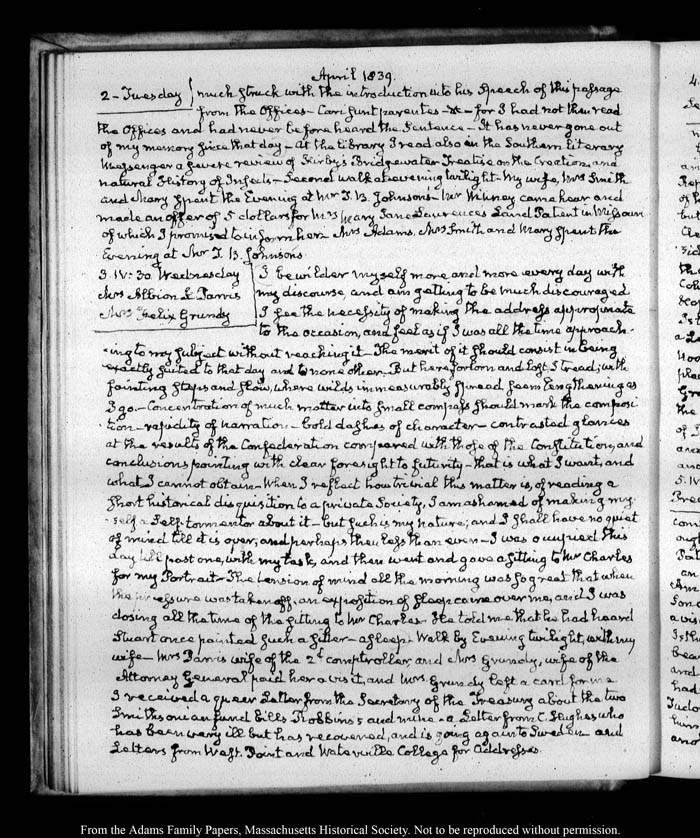 April 1839.
2 - Tuesday much struck with the introduction into his Speech of this passage
from the Offices - Cari sunt parentes - &c - for I had not then read
the Offices and had never before heard the Sentence - It has never gone out
of my memory since that day - At the Library I read also in the Southern Literary
Messenger a severe review of Kirby's Bridgewater Treatise on the Creation and
natural History of Insects - Second walk at evening twilight - My wife, Mrs Smith
and Mary spent the Evening at Mr T. B. Johnson's - Mr came here and
made an offer of 5 dollars for Mrs Mary Jane Land Patent in Missouri
of which I promised to inform her - Mrs Adams, Mrs Smith and Mary spent the
Evening at Mr T. B. Johnsons
3. IV: 30 Wednesday I bewilder myself more and more every day with
Mrs Albion K Parris my discourse, and am getting to be much discouraged.
Mrs Felix Grundy I feel the necessity of making the address appropriate
to the occasion, and feel as if I was all the time approach-
-ing to my subject without reaching it - The merit of it should consist in being
exactly suited to that day and to none other - But here forlorn and lost I tread; with
fainting steps and slow, where wilds immeasurably spread seem lengthening as
I go. - Concentration of much matter into small compass should mark the composi-
-tion - rapidity of narration - bold dashes of character - contrasted glances
at the results of the Confederation compared with those of the Constitution, and
conclusions pointing with clear foresight to futurity - that is what I want, and
what I cannot obtain - When I reflect how trivial this matter is, of reading a
short historical disquisition to a private Society, I am ashamed of making my
-self a Self-tormentor about it - but such is my nature; and I shall have no quiet
of mind till it is over; and perhaps then less than even - I was occupied this
day till past one, with my task, and then went and gave a sitting to Mr Charles
for my Portrait - The tension of mind all the morning was so great that when
the pressure was taken off, an of sleep came over me, and I was
dosing all the time of the sitting to Mr Charles - He told me that he had heard
Stuart once painted such a sitter - asleep. Walk by Evening twilight, with my
wife - Mrs Parris wife of the 2d comptroller and Mrs Grundy, wife of the
Attorney General paid her a visit, and Mrs Grundy left a card for me
I received a queer Letter from the Secretary of the Treasury about the two
Smithsonian fund bills Robbins's and mine - a Letter from C. Hughes who
has been very ill but has recovered, and is going again to Sweden and
Letters from West Point and Waterville College for addresses.
From the Adams Family Papers, Massachusetts Historical Society. Not to be reproduced without permission.